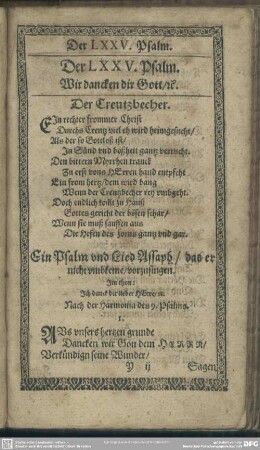 Der LXXV. Psalm.
Der LXXV. Psalm.
Wir dancken dir Gott/ ꝛc.
Der Creutzbecher.
EIn rechter frommer Christ
Durchs Creutz viel eh wird heimgesucht/
Als der so Gottloß ist/
In Sünd vnd boßheit gantz verrucht.
Den bittern Myrrhen tranck
Zu erst vons HErren hand entpfeht
Ein from hertz/ dem wird bang
Wenn der Creutzbecher vmbgeht.
Doch endlich kompt zu Hauß
Gottes gericht der bösen schar/
Wenn sie muß sauffen aus
Die Hefen des zorns gantz vnd gar.
Ein Psalm vnd Lied Assaph/ das er
nicht vmbkeme/ vorzusingen.
Im thon:
Ich danck dir lieber HErre/ ꝛc.
Nach der Harmonia des 7. Psalms.
1.
AVs vnsers hertzen grunde
Dancken wir Gott dem HERRN/
Verkündign seine Wunder/
Y ij
Sagen